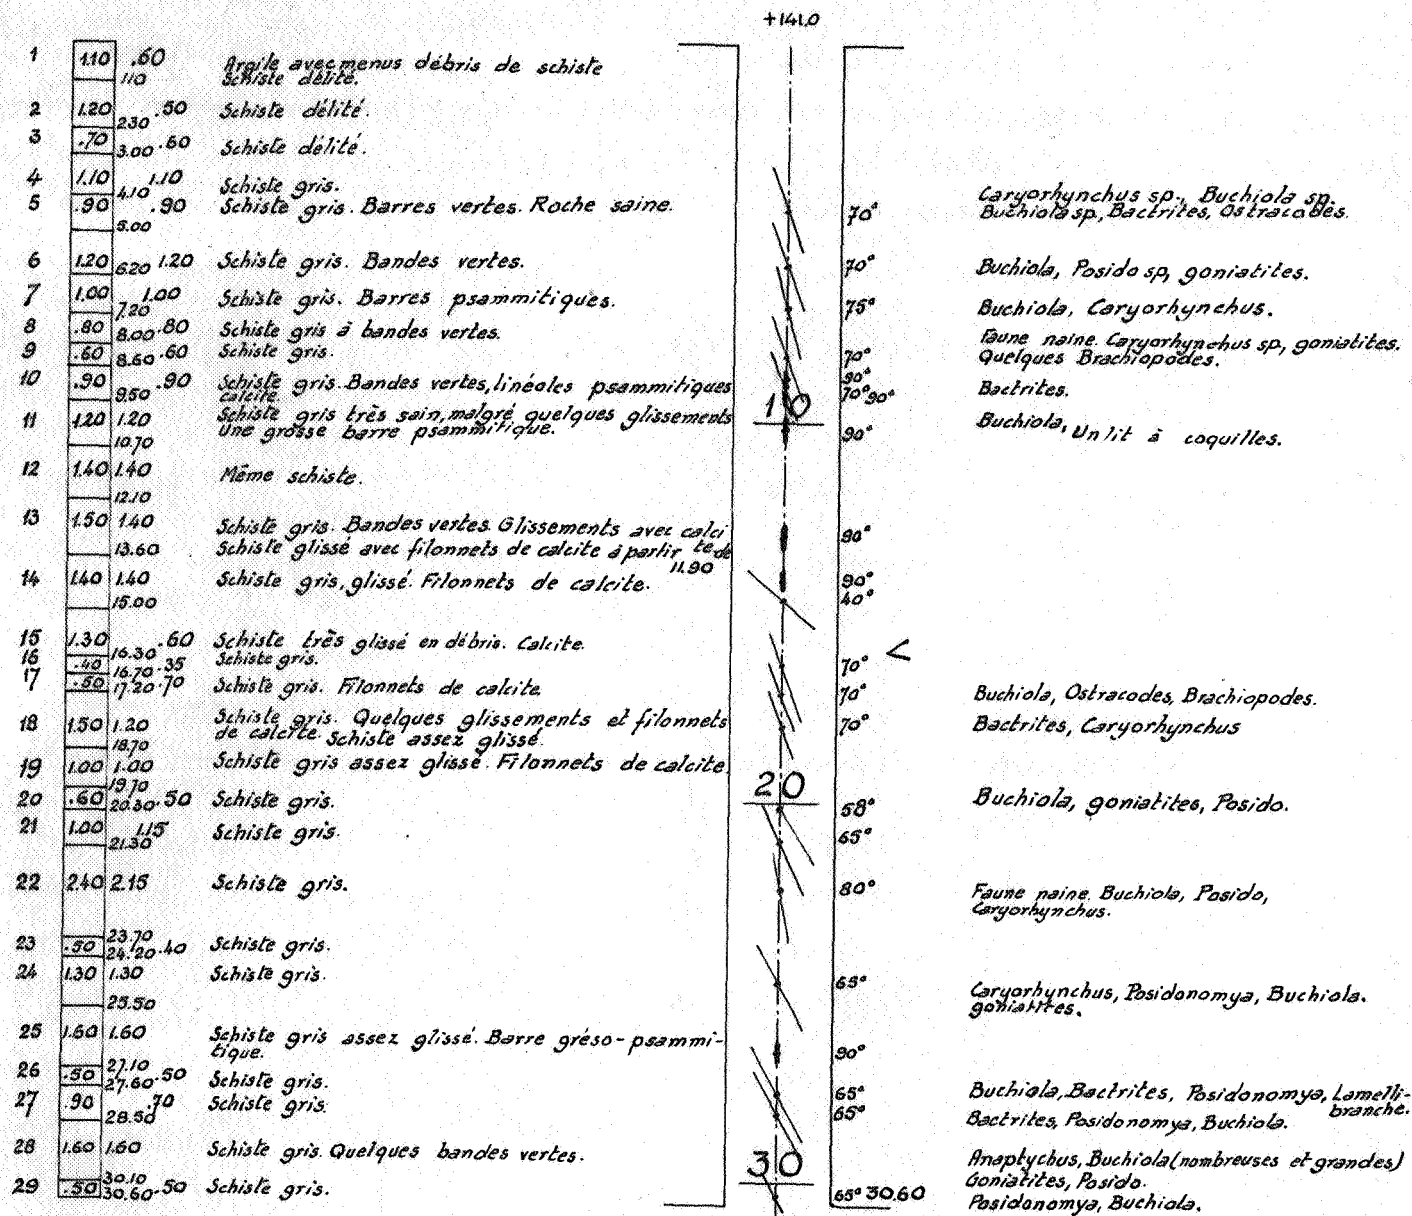 +141.0
1 1.10 .60 Argile avec menus débris de schiste
1.10 Schiste délité.
2 1.20 .50 Schiste délité.
2.30
3 .70 3.00 .60 Schiste délité.
4 1.10 4.10 1.10 Schiste gris. Caryorhynchus sp., Buchiola sp.
5 .90 .90 Schiste gris. Barres vertes. Roche saine. 70° Buchiola sp., Bactrites, Ostracodes.
5.00
6 1.20 6.20 1.20 Schiste gris. Bandes vertes. 70° Buchiola, Posido sp, goniatites.
7 1.00 7.20 1.00 Schiste gris. Barres psammitiques. 75° Buchiola, Caryorhynchus.
8 .80 8.00 .80 Schiste gris à bandes vertes. Faune naine. Caryorhynchus sp, goniatites.
9 .60 8.60 .60 Schiste gris. 70° Quelques Brachiopodes.
90°
10 .90 9.50 .90 Schiste gris. Bandes vertes, linéoles psammitiques 70° 90° Bactrites.
calcite.
10
11 1.20 1.20 Schiste gris très sain, malgré quelques glissements Buchiola, Un lit à coquilles.
10.70 Une grosse barre psammitique. 90°
12 1.40 1.40 Même schiste.
12.10
13 1.50 1.40 Schiste gris. Bandes vertes. Glissements avec calci 90°
13.60 Schiste glissé avec filonnets de calcite à partir te de
11.90
14 1.40 1.40 Schiste gris, glissé. Filonnets de calcite. 90°
15.00 40°
15 1.30 16.30 .60 Schiste très glissé en débris. Calcite.
16 .40 16.70 .35 Schiste gris. 70° <
17 .50 17.20 .70 Schiste gris. Filonnets de calcite. 70° Buchiola, Ostracodes, Brachiopodes.
18 1.50 1.20 Schiste gris. Quelques glissements et filonnets 70° Bactrites, Caryorhynchus
18.70 de calcite. Schiste assez glissé.
19 1.00 1.00 Schiste gris assez glissé. Filonnets de calcite.
19.70
20
20 .60 20.30 .50 Schiste gris. 58° Buchiola, goniatites, Posido.
21 1.00 21.30 1.15 Schiste gris. 65°
22 2.40 2.15 Schiste gris. 80° Faune naine. Buchiola, Posido,
Caryorhynchus.
23.70
23 .50 24.20 .40 Schiste gris.
24 1.30 1.30 Schiste gris. 65° Caryorhynchus, Posidonomya, Buchiola.
25.50 goniatites.
25 1.60 1.60 Schiste gris assez glissé. Barre gréso-psammi-
tique. 90°
27.10
26 .50 27.60 .50 Schiste gris. 65° Buchiola, Bactrites, Posidonomya, Lamelli-
branche.
27 .90 28.50 .70 Schiste gris. 65° Bactrites, Posidonomya, Buchiola.
28 1.60 1.60 Schiste gris. Quelques bandes vertes. Anaptychus, Buchiola (nombreuses et grandes)
30
30.10 Goniatites, Posido.
29 .50 30.60 .50 Schiste gris. 65° 30.60 Posidonomya, Buchiola.